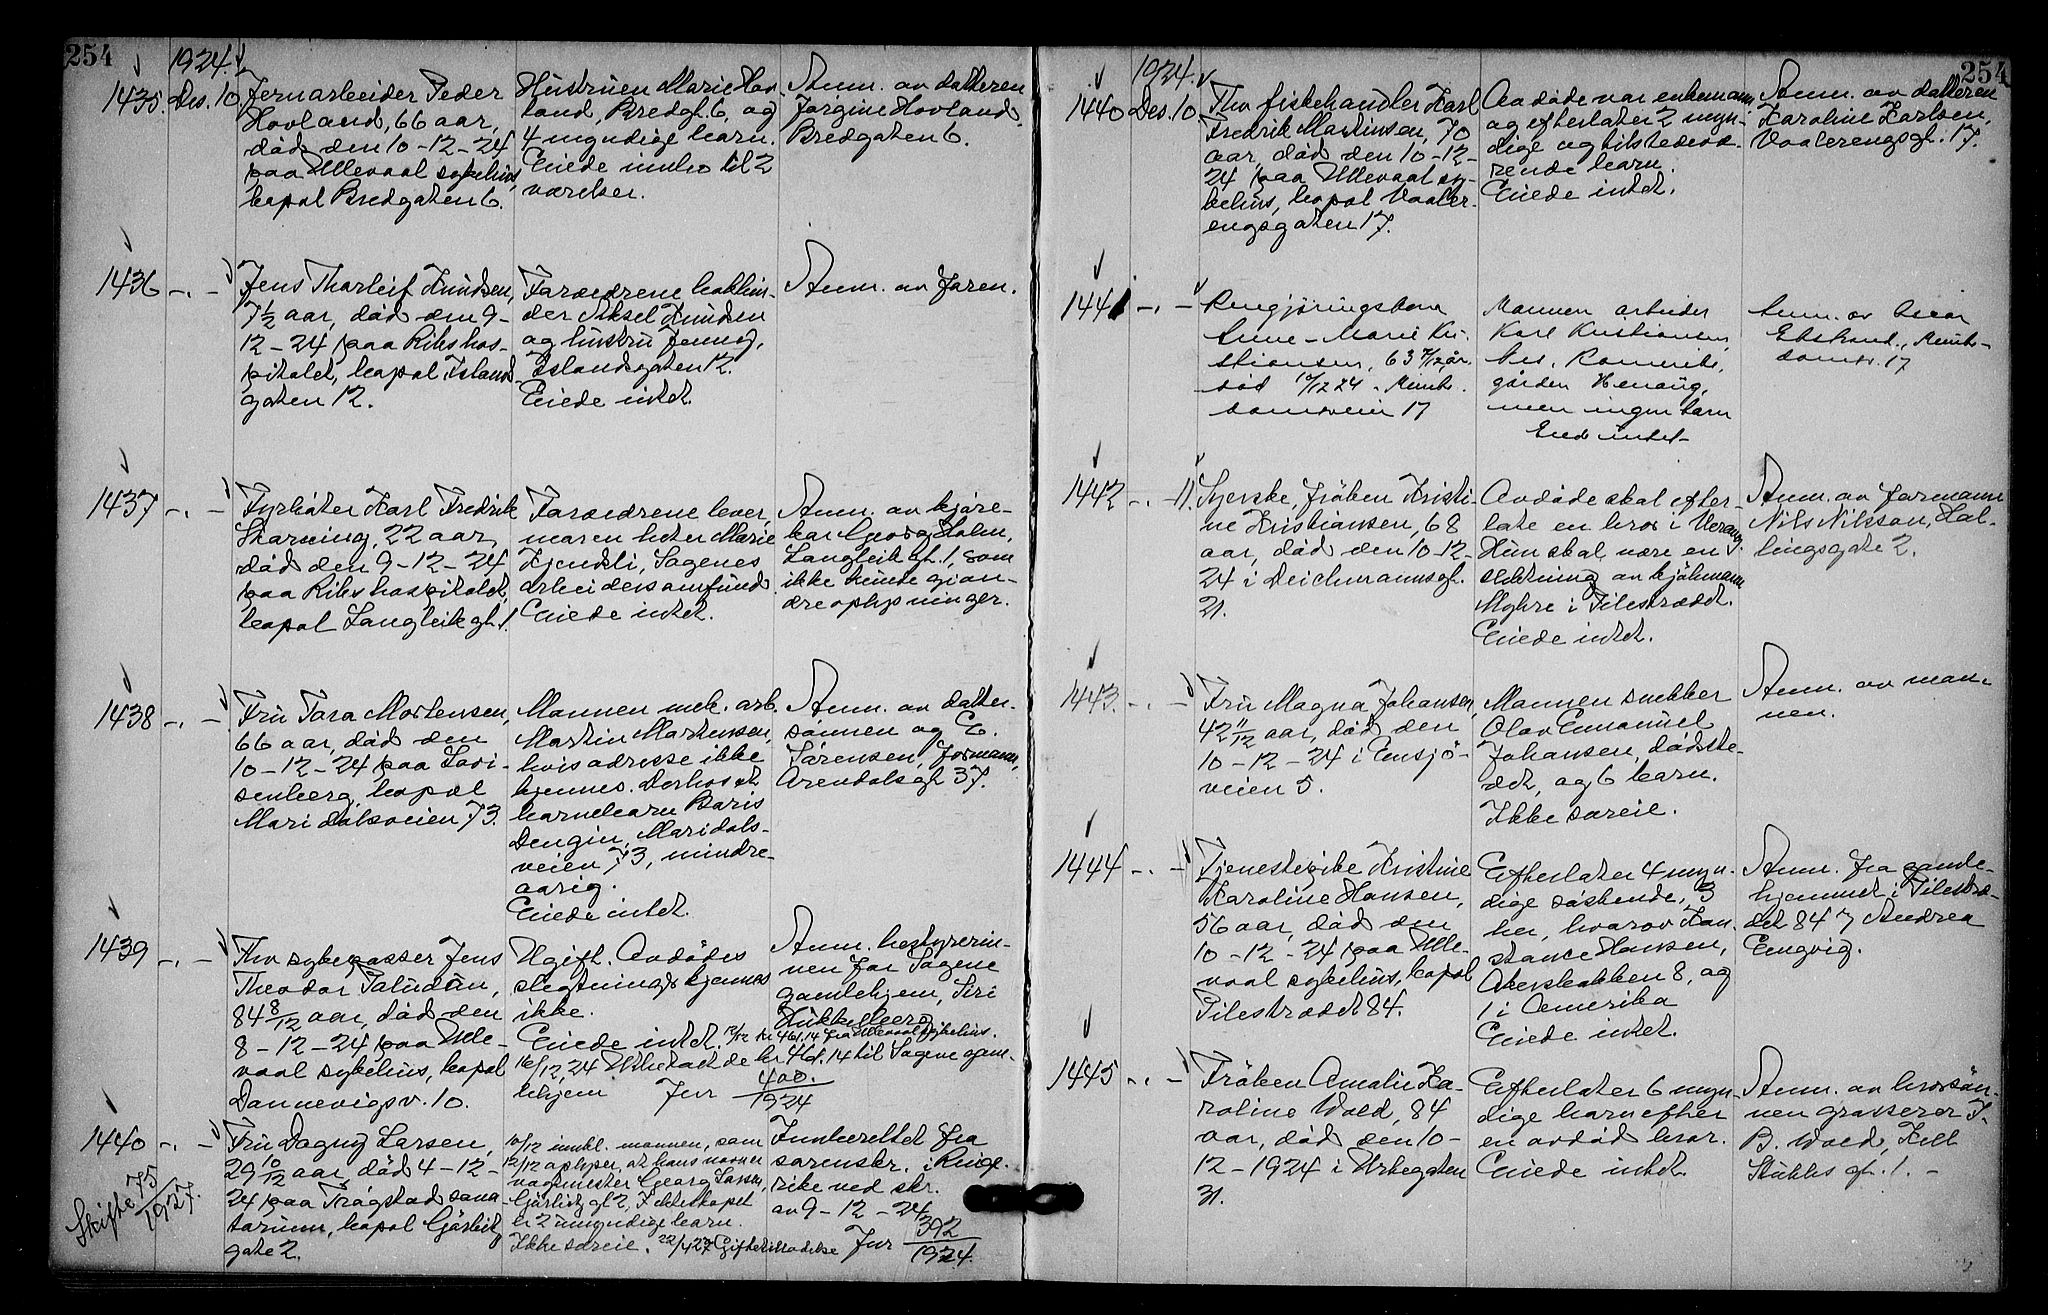 254
1924.
1435. Des. 10.
Jernarbeider Peder
Hovland, 66 aar,
död den 10-12-24
paa Ullevaal sykehus,
bopal Bredgaten 6.
Hustruen Marie Hov
land, Bredgt. 6, og
4 myndige barn.
Eiede innbo til 2
værelser.
Anm. av datteren
Jörgine Hovland
Bredgaten 6.
1436 -.-
Jens Thorleif Knudsen,
7 1/2 aar, död den 9-
12-24 paa Rikshos-
pitalet, bopal Islands
gaten 12.
Foræidrene bokbin-
der Aksel Knudsen
og hustru Jenny,
Islandsgaten 12.
Eiede intet.
Anm. av faren.
1437 -.-
Fyrböter Karl Fredrik
Skarning, 22 aar,
död den 9-12-24
paa Rikshospitalet,
bopal Langleikgt. 1.
Foræidrene lever,
moren heter Marie
Kjendli, Sagenes
arbeidersamfund.
Eiede intet.
Anm. av kjöre-
kar Georg Holm,
Langleik gt. 1, som
ikke kunde gi an-
dre oplysninger.
1438 -.-
Fru Tora Mortensen,
66 aar, död den
10-12-24 paa Lovi-
senberg, bopal
Maridalsveien 73.
Mannen mek. arb.
Martin Mortensen,
hvis adresse ikke
kjennes. Derhos et
barnebarn Boris
Dengin, Maridals-
veien 73, mindre-
aarig.
Eiede intet.
Anm. av datter-
sönnen og E.
Sörensen, formann,
Arendalsgt. 37.
1439 -.-
Fhv sykepasser Jens
Theodor Paludan,
84 8/12 aar, död den
8-12-24 paa Ulle-
vaal sykehus, bopal
Dannevigsv. 10.
Ugift. Avdödes
slegtninger kjennes
ikke.
Eiede intet. 12/12 kr 461.14 fra Ullevaal sykehus.
16/12,24 Utbetalt de kr. 461.14 til Sagene gam-
lehjem Jnr 400./1924
Anm. bestyrerin-
nen for Sagene
gamlehjem, Siri
Hukkelberg
1440 -.-
Skifte 75/1927.
Fru Dagny Larsen,
29 10/12 aar, död 4-12-
24 paa Trögstad sana
torium, bopal Gjörbitz
gate 2.
10/12 innkl. mannen, som
12/12 oplyser, at hans navn er
vaktmester Georg Larsen,
Gjörbitz gt 2, I ekteskapet
er 2 umyndige barn.
Ikke særeie. 22/4 27 Giftetilladelse
Innberettet fra
sorenskr. i Ringe-
rike ved skr.
av 9-12-24
Jnr 392/1924.
254
1924.
1440 Des. 10.
Fhv fiskehandler Karl
Fredrik Martinsen, 70
aar, död den 10-12-
24 paa Ullevaal sy-
kehus, bopal Vaaler-
engsgaten 17.
Avdöde var enkemann
og efterlater 2 myn-
dige og tilstedevæ-
rende barn.
Eiede intet.
Anm. av datteren
Karoline Karlsen,
Vaalerengsgt. 17.
1441 -.-
Rengjöringskone
Anne-Marie Kri-
stiansen, 63 7/12 år
död 10/12 24 -
veien 17
Mannen arbeider
Karl Kristiansen,
bor, Romeriks,
gården Henaug,
men ingen barn
Eied intet-
Anm. av
17
1442 -.- 11.
Syerske, fröken Kristi-
ne Kristiansen, 68
aar, död den 10-12-
24 i Deichmannsgt.
21.
Avdöde skal efter-
late en bror i
Hun skal være en
slektning av kjöbmann
Myhre i Pilestrædet.
Eiede intet.
Anm. av formann
Nils Nilsson, Hal-
lingsgate 2.
1443. -.-
Fru Magna Johansen,
42 11/12 aar, död den
10-12-24 i Ensjö-
veien 5.
Mannen snekker
Olav Emanuel
Johansen, dödste-
det, og 6 barn.
Ikke særeie.
Anm. av man-
nen.
1444 -.-
Tjenestepike Kristine
Karoline Hansen,
56 aar, död den
10-12-24 paa Ulle-
vaal sykehus, bopal
Pilestrædet 84.
Efterlater 4 myn-
dige söskende, 3
her, hvorav Kon-
stance Hansen,
Akersbakken 8, og
1 i Amerika
Eiede intet.
Anm. fra gamle-
hjemmet i Pilestræ-
det 84 v/ Andrea
Engvig.
1445 -.-
Fröken Amalie Ka-
roline Wold, 84
aar, död den 10-
12-1924 i Urtegaten
31.
Efterlater 6 myn-
dige barn efter
en avdöd bror.
Eiede intet.
Anm. av brorsön-
nen grosserer I.
B. Wold, Kell
Stubbs gt. 1. -